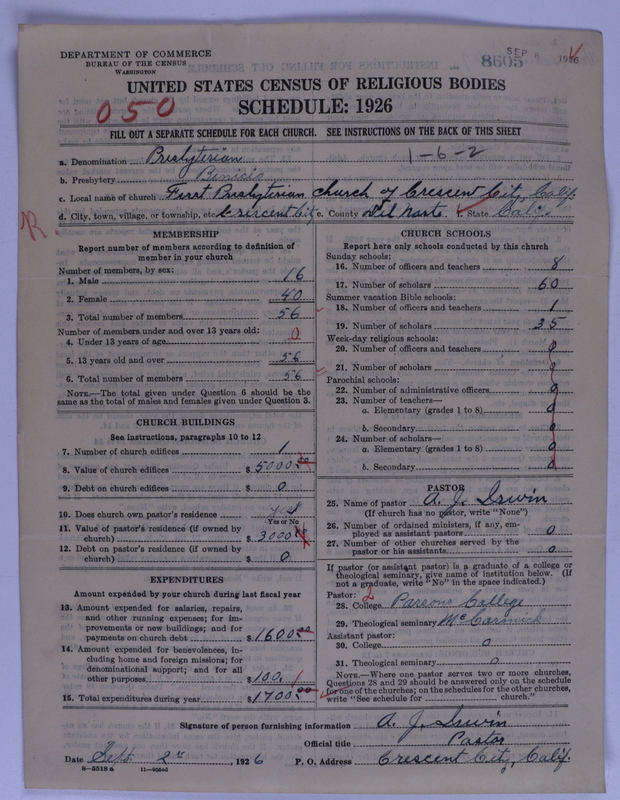 DEPARTMENT OF COMMERCE
BUREAU OF THE CENSUS
WASHINGTON
8605 SEP 1926
UNITED STATES CENSUS OF RELIGIOUS BODIES
SCHEDULE: 1926
050
FILL OUT A SEPARATE SCHEDULE FOR EACH CHURCH. SEE INSTRUCTIONS ON THE BACK OF THIS SHEET
a. Denomination Presbyterian 1-6-2
b. Presbytery Benicia
c. Local name of church First Presbyterian church of Crescent City, Calif.
d. City, town, village, or township, etc. Crescent City e. County Del Norte f. State Calif.
R.
MEMBERSHIP
Report number of members according to definition of
member in your church
Number of members, by sex:
1. Male 16
2. Female 40
3. Total number of members 56
Number of members under and over 13 years old:
4. Under 13 years of age 0
5. 13 years old and over 56
6. Total number of members 56
NOTE.—The total given under Question 6 should be
same as the total of males and females given under Question 3.
CHURCH BUILDINGS
See instructions, paragraphs 10 to 12
7. Number of church edifices 1
8. Value of church edifices $ 5000.00
9. Debt on church edifices $ 0
10. Does church own pastor's residence yes
Yes or No
11. Value of pastor's residence (if owned by
church) $ 3000
12. Debt on pastor's residence (if owned by
church) $ 0
EXPENDITURES
Amount expended by your church during last fiscal year
13. Amount expended for salaries, repairs,
and other running expenses; for im-
provements or new buildings; and for
payments on church debt $ 1600.00
14. Amount expended for benevolences, in-
cluding home and foreign missions; for
denominational support; and for all
other purposes $ 100.
15. Total expenditures during year $ 1700.00
CHURCH SCHOOLS
Report here only schools conducted by this church
Sunday schools:
16. Number of officers and teachers 8
17. Number of scholars 60
Summer vacation Bible schools:
18. Number of officers and teachers 1
19. Number of scholars 35
Week-day religious schools:
20. Number of officers and teachers 0
21. Number of scholars 0
Parochial schools:
22. Number of administrative officers 0
23. Number of teachers—
a. Elementary (grades 1 to 8) 0
b. Secondary 0
24. Number of scholars—
a. Elementary (grades 1 to 8) 0
b. Secondary 0
PASTOR
25. Name of pastor A. J. Irwin
(If church has no pastor, write "None")
26. Number of ordained ministers, if any, em-
ployed as assistant pastors 0
27. Number of other churches served by the
pastor or his assistants 0
If pastor (or assistant pastor) is a graduate of a college or
theological seminary, give name of institution below. (If
not a graduate, write "No" in the space indicated.)
Pastor: 2
28. College Parsons College
29. Theological seminary McCormick
Assistant pastor:
30. College 0
31. Theological seminary 0
NOTE.—Where one pastor serves two or more churches,
Questions 28 and 29 should be answered only on the schedule
for one of the churches; on the schedules for the other churches,
write "See schedule for church."
Signature of person furnishing information A. J. Irwin
Official title Pastor
Date Sept. 2nd, 1926 P. O. Address Crescent City, Calif.